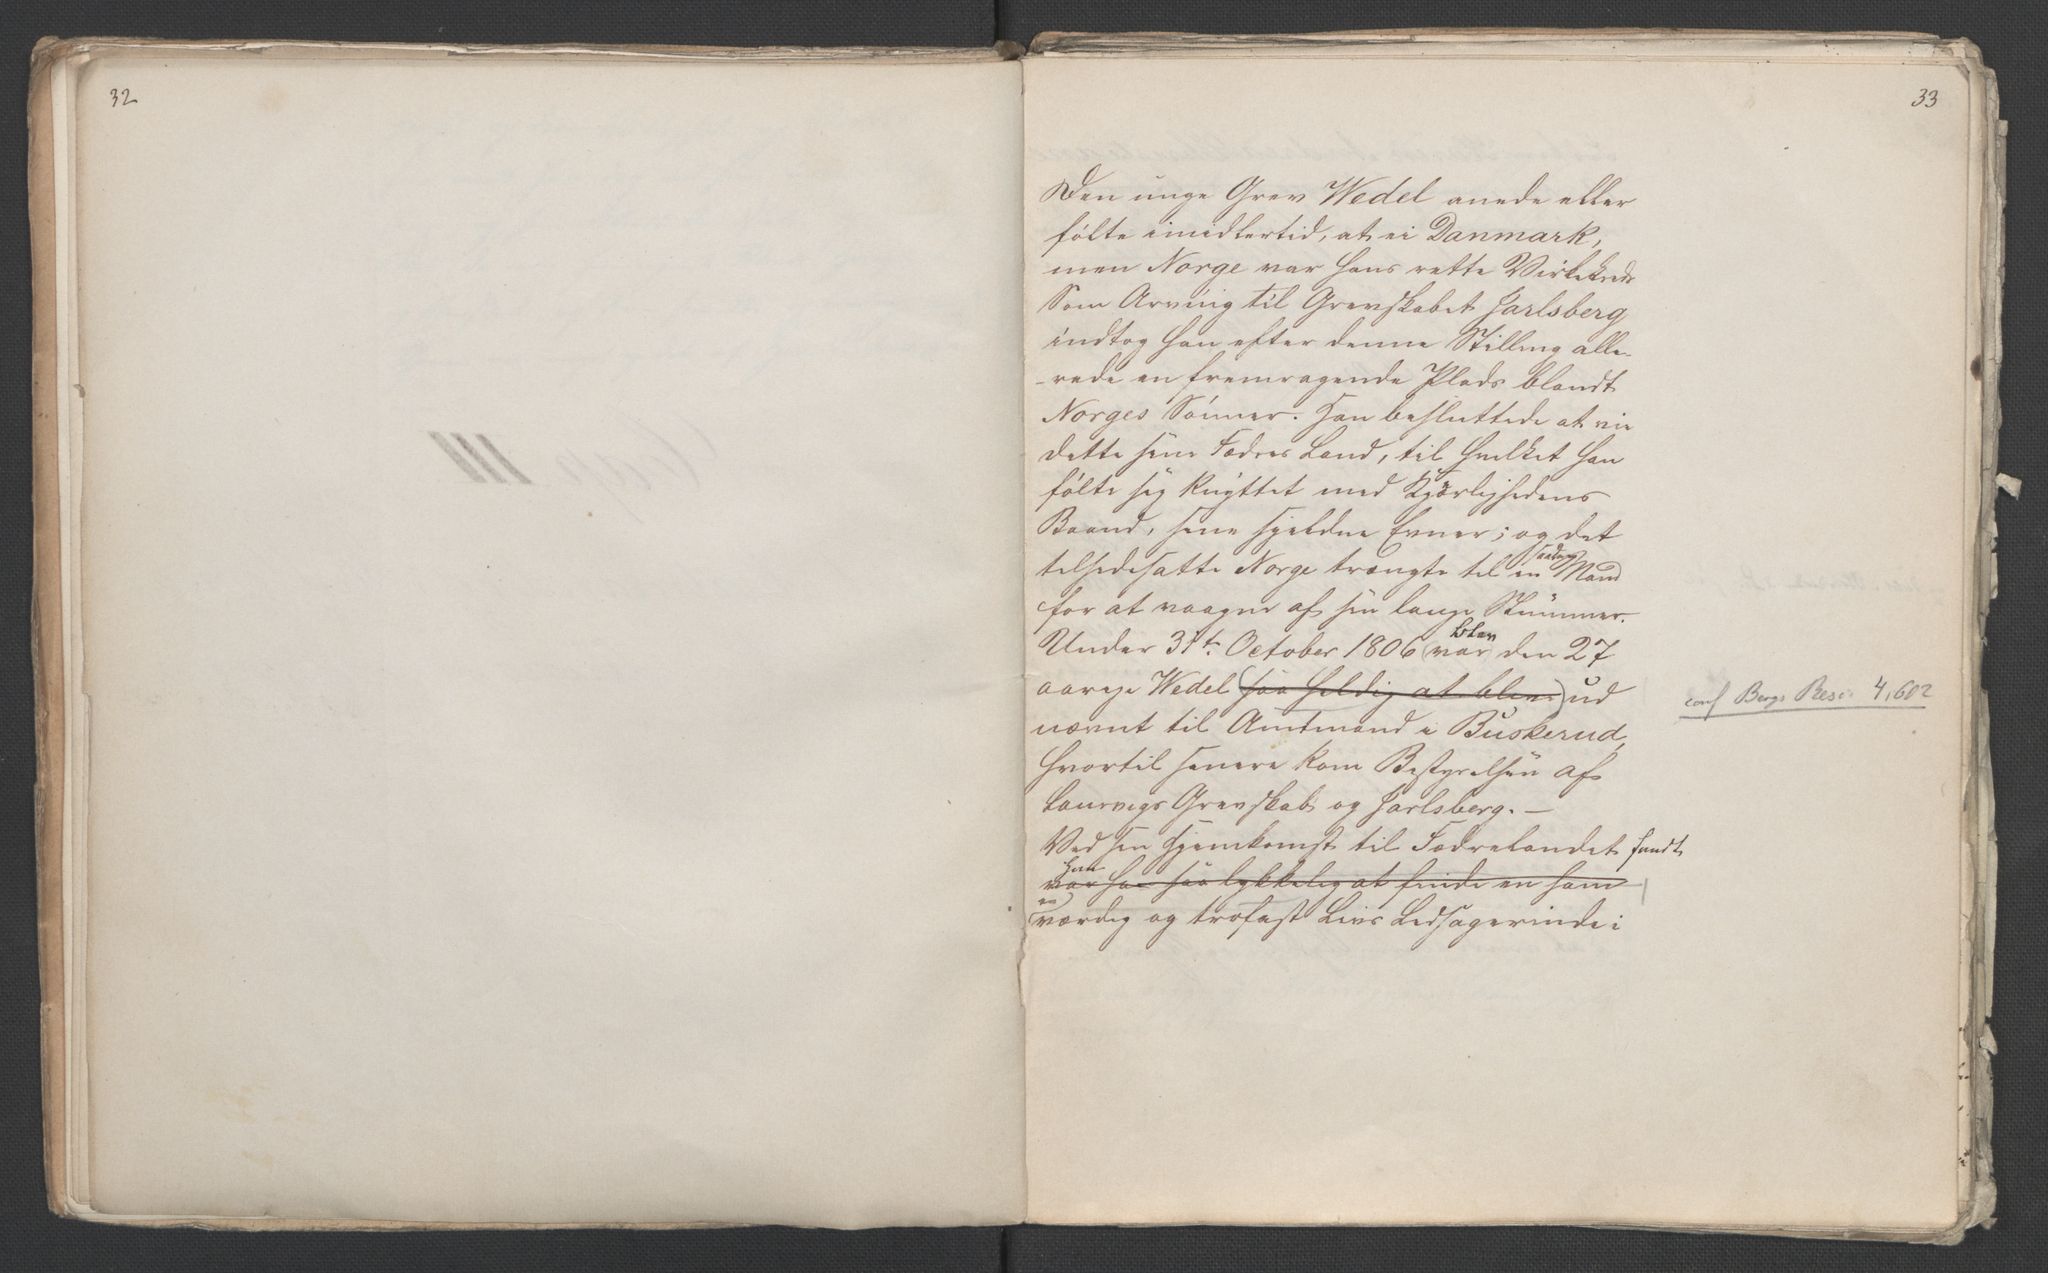 32
33
Den unge Grev Wedel anede eller
følte imidlertid, at ei Danmark,
men Norge var hans rette Virkekreds
Som Arving til Grevskabet Jarlsberg
indtog han efter denne Stilling alle-
-rede en fremragende Plads blandt
Norges Sønner. Han besluttede at vie
dette sine Fædres Land, til hvilket han
følte sig knyttet med Kjærlighedens
Baand, sine sjeldne Evner; og det
saadan
tilsidesatte Norge trængte til en Mand
for at vaagne af sin lange Slummer.
blev
Under 31te October 1806 (var) den 27
aarige Wedel (saa heldig at blive) ud
nævnt til Amtmand i Buskerud,
conf Bergs Resc: 4,602
hvortil senere kom Bestyrelsen af
Laurvigs Grevskab og Jarlsberg. —
Ved sin Hjemkomst til Fædrelandet fandt
han
var han saa lykkelig at finde en ham
en
værdig og trofast Livs Ledsagerinde i